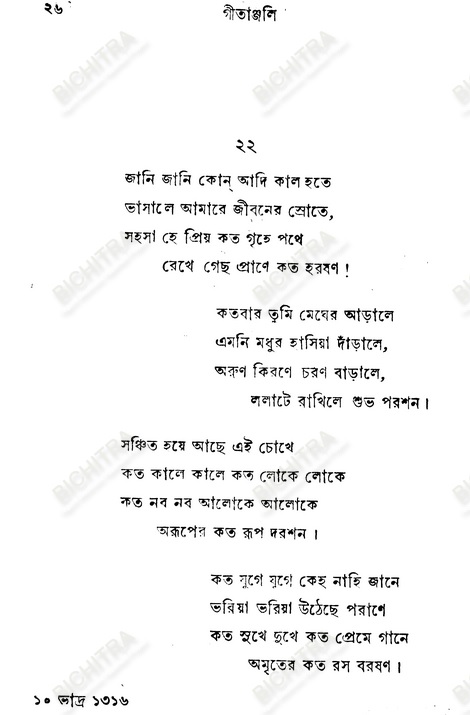 ২৬
গীতাঞ্জলি
২২
জানি জানি কোন্ আদি কাল হতে
ভাসালে আমারে জীবনের স্রোতে,
সহসা হে প্রিয় কত গৃহে পথে
রেখে গেছ প্রাণে কত হরষণ !
কতবার তুমি মেঘের আড়ালে
এমনি মধুর হাসিয়া দাঁড়ালে,
অরুণ কিরণে চরণ বাড়ালে,
ললাটে রাখিলে শুভ পরশন।
সঞ্চিত হয়ে আছে এই চোখে
কত কালে কালে কত লোকে লোকে
কত নব নব আলোকে আলোকে
অরূপের কত রূপ দরশন।
কত যুগে যুগে কেহ নাহি জানে
ভরিয়া ভরিয়া উঠেছে পরাণে
কত সুখে দুখে কত প্রেমে গানে
অমৃতের কত রস বরষণ।
১০ ভাদ্র ১৩১৬
BICHITRA
BICHITRA
BICHITRA
BICHITRA
BICHITRA
BICHITRA
BICHITRA
BICHITRA